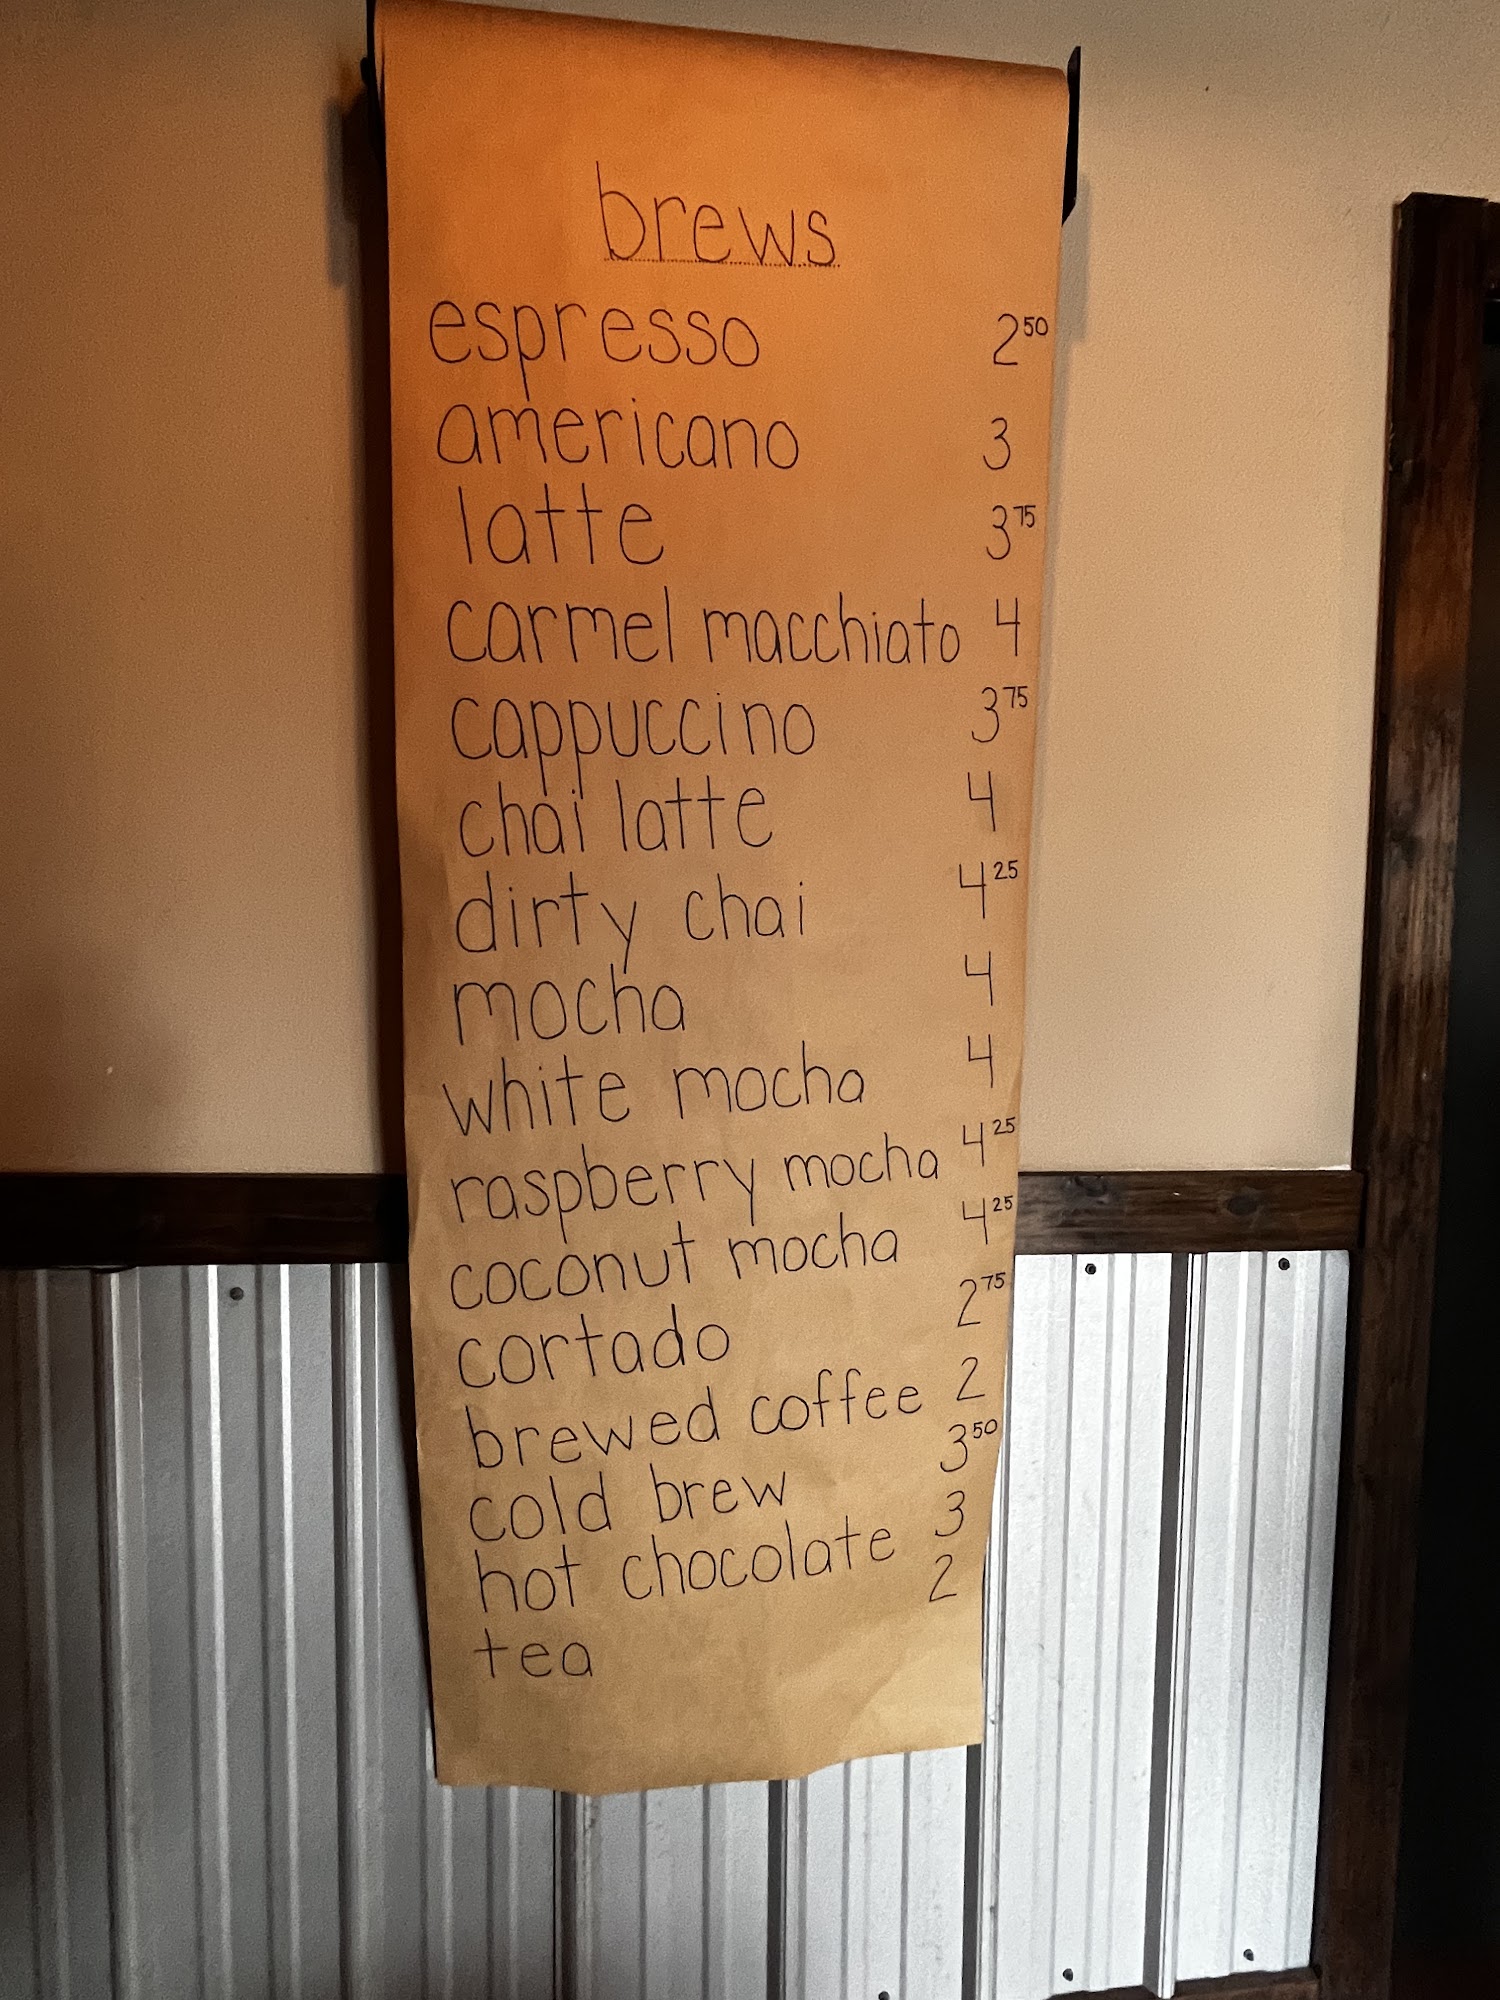 brews
espresso 2 50
americano 3
latte 3 75
carmel macchiato 4
cappuccino 3 75
chai latte 4
dirty chai 4 25
mocha 4
white mocha 4
raspberry mocha 4 25
coconut mocha 4 25
cortado 2 75
brewed coffee 2
cold brew 3 50
hot chocolate 3
tea 2